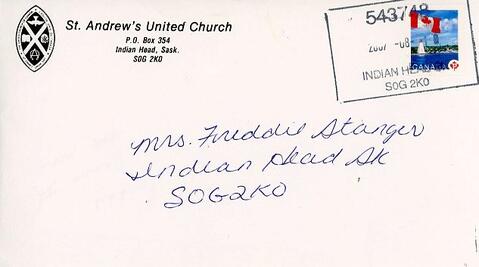 St. Andrew's United Church
P.O. Box 354
Indian Head, Sask.
S0G 2K0
543748
2007 -08-
INDIAN HEAD
S0G 2K0
CANADA
P
Mrs. Freddie Stanger
Indian Head Sk
S0G2K0